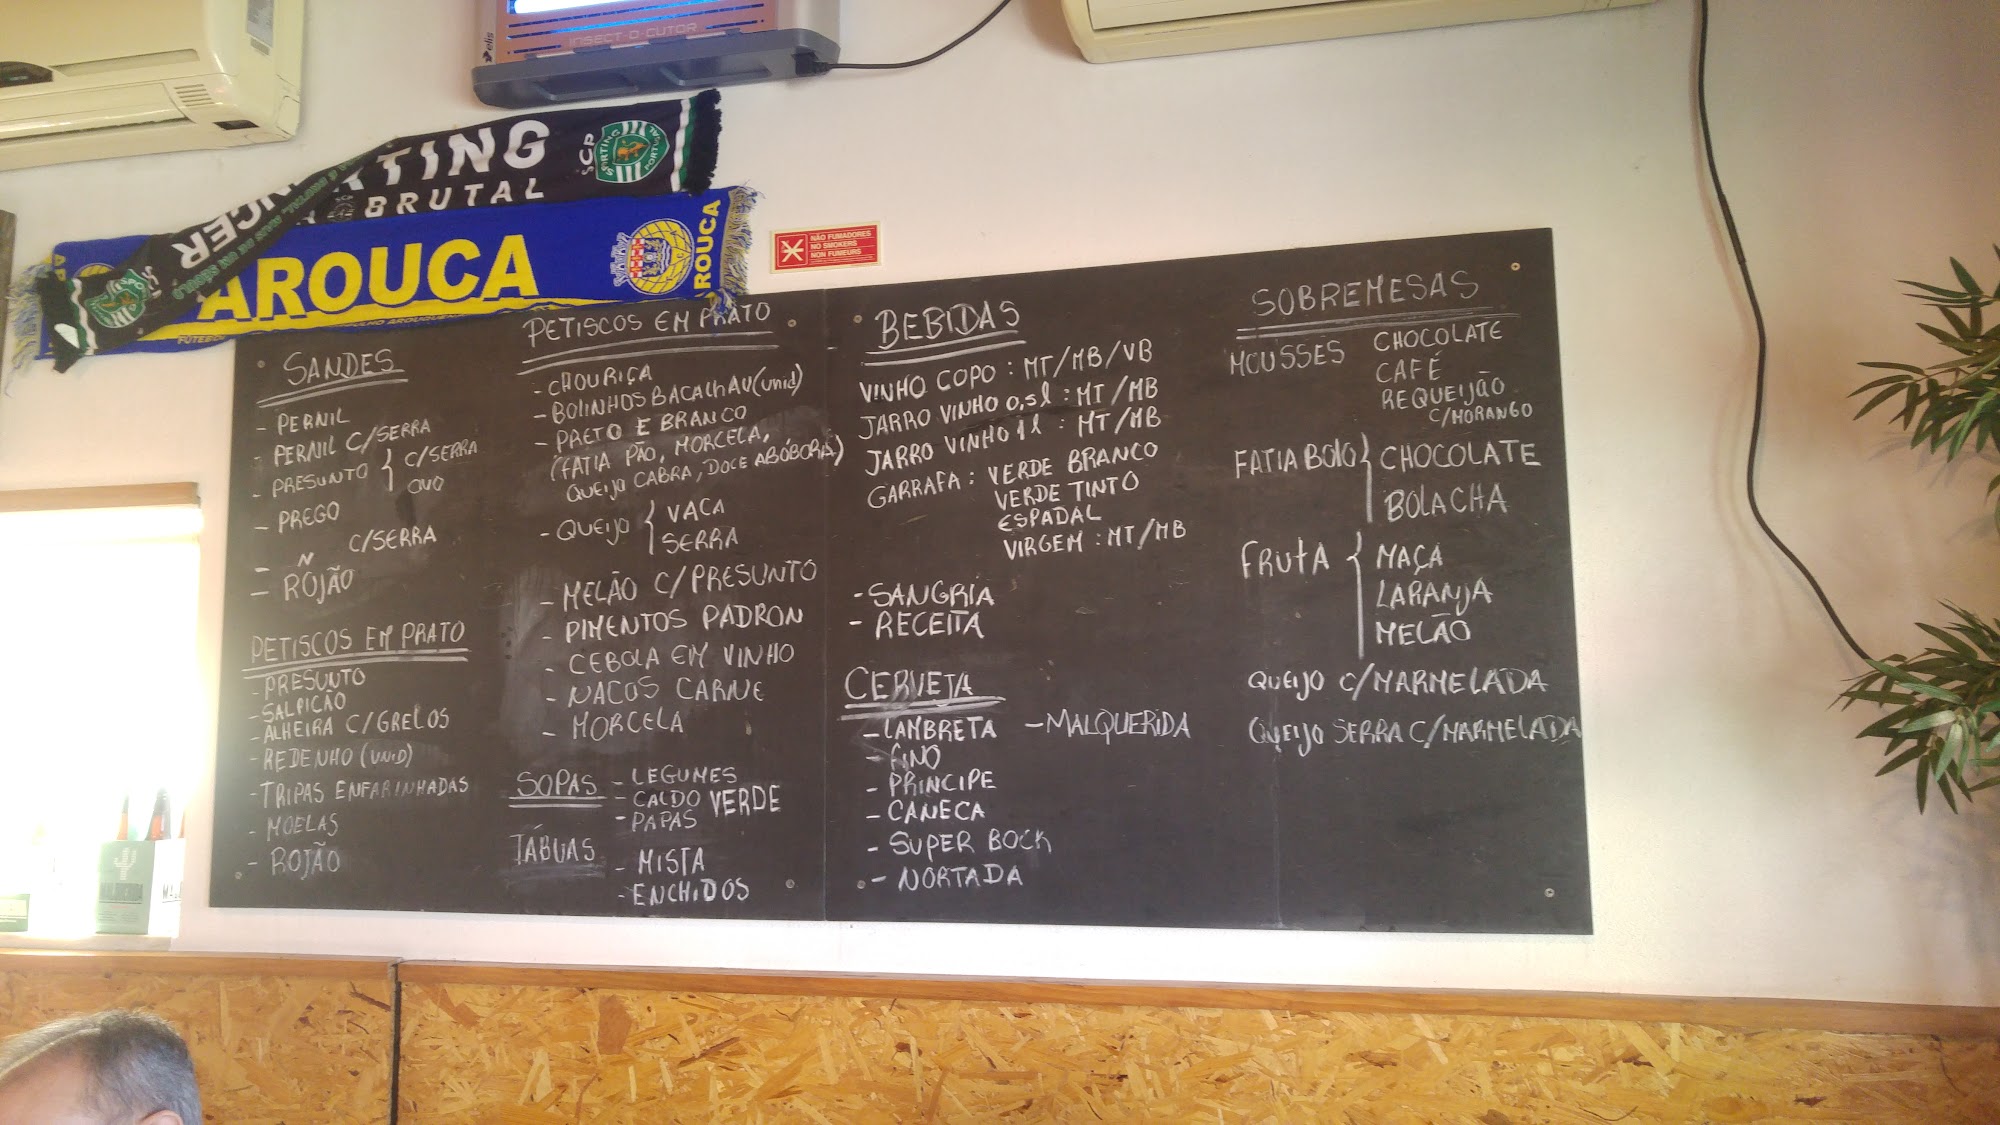 elis
INSECT-O-CUTOR
SCP
SPORTING
PORTUGAL
BRUTAL
AROUCA
AROUCA
NÃO FUMADORES
NO SMOKERS
NON FUMEURS
SANDES
- PERNIL
- PERNIL C/SERRA
- PRESUNTO { C/SERRA
OVO
- PREGO
- " C/SERRA
- ROJÃO
PETISCOS EM PRATO
- PRESUNTO
- SALPICÃO
- ALHEIRA C/GRELOS
- REDENHO (UNID)
- TRIPAS ENFARINHADAS
- MOELAS
- ROJÃO
PETISCOS EM PRATO
- CHOURIÇA
- BOLINHOS BACALHAU (unid)
- PRETO E BRANCO
(FATIA PÃO, MORCELA,
QUEIJO CABRA, DOCE ABÓBORA)
- QUEIJO { VACA
SERRA
- MELÃO C/PRESUNTO
- PIMENTOS PADRON
- CEBOLA EM VINHO
- NACOS CARNE
- MORCELA
SOPAS - LEGUMES
- CALDO VERDE
- PAPAS
TÁBUAS - MISTA
- ENCHIDOS
BEBIDAS
VINHO COPO : MT/MB/VB
JARRO VINHO 0,5l : MT/MB
JARRO VINHO 1l : MT/MB
GARRAFA : VERDE BRANCO
VERDE TINTO
ESPADAL
VIRGEM : MT/MB
- SANGRIA
- RECEITA
CERVEJA
- LAMBRETA - MALQUERIDA
- FINO
- PRINCIPE
- CANECA
- SUPER BOCK
- NORTADA
SOBREMESAS
MOUSSES CHOCOLATE
CAFÉ
REQUEIJÃO
C/MORANGO
FATIA BOLO { CHOCOLATE
BOLACHA
FRUTA { MAÇA
LARANJA
MELÃO
QUEIJO C/MARMELADA
QUEIJO SERRA C/MARMELADA